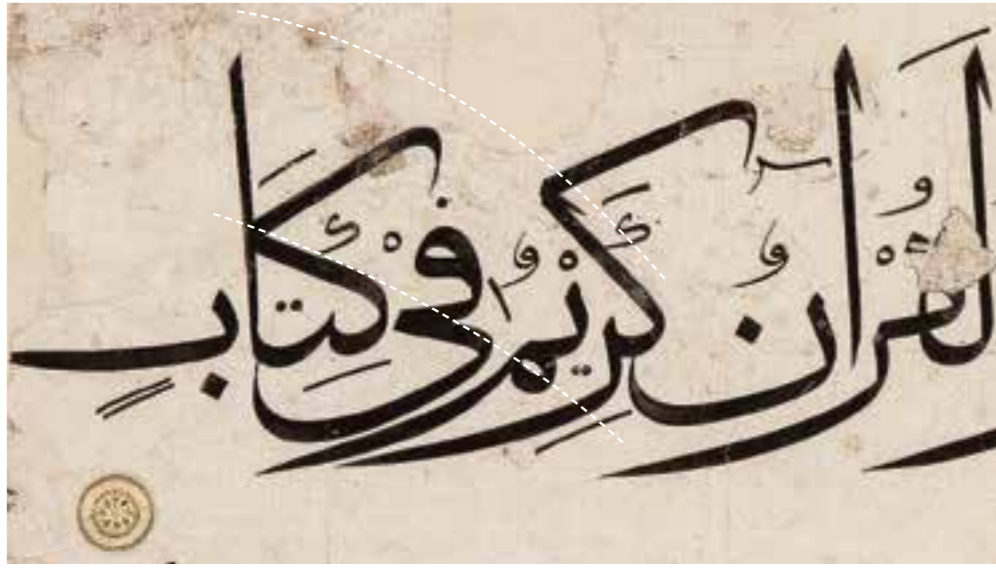 لَقُرْآنٌ كَرِيْمٌ فِيْ كِتَابٍ